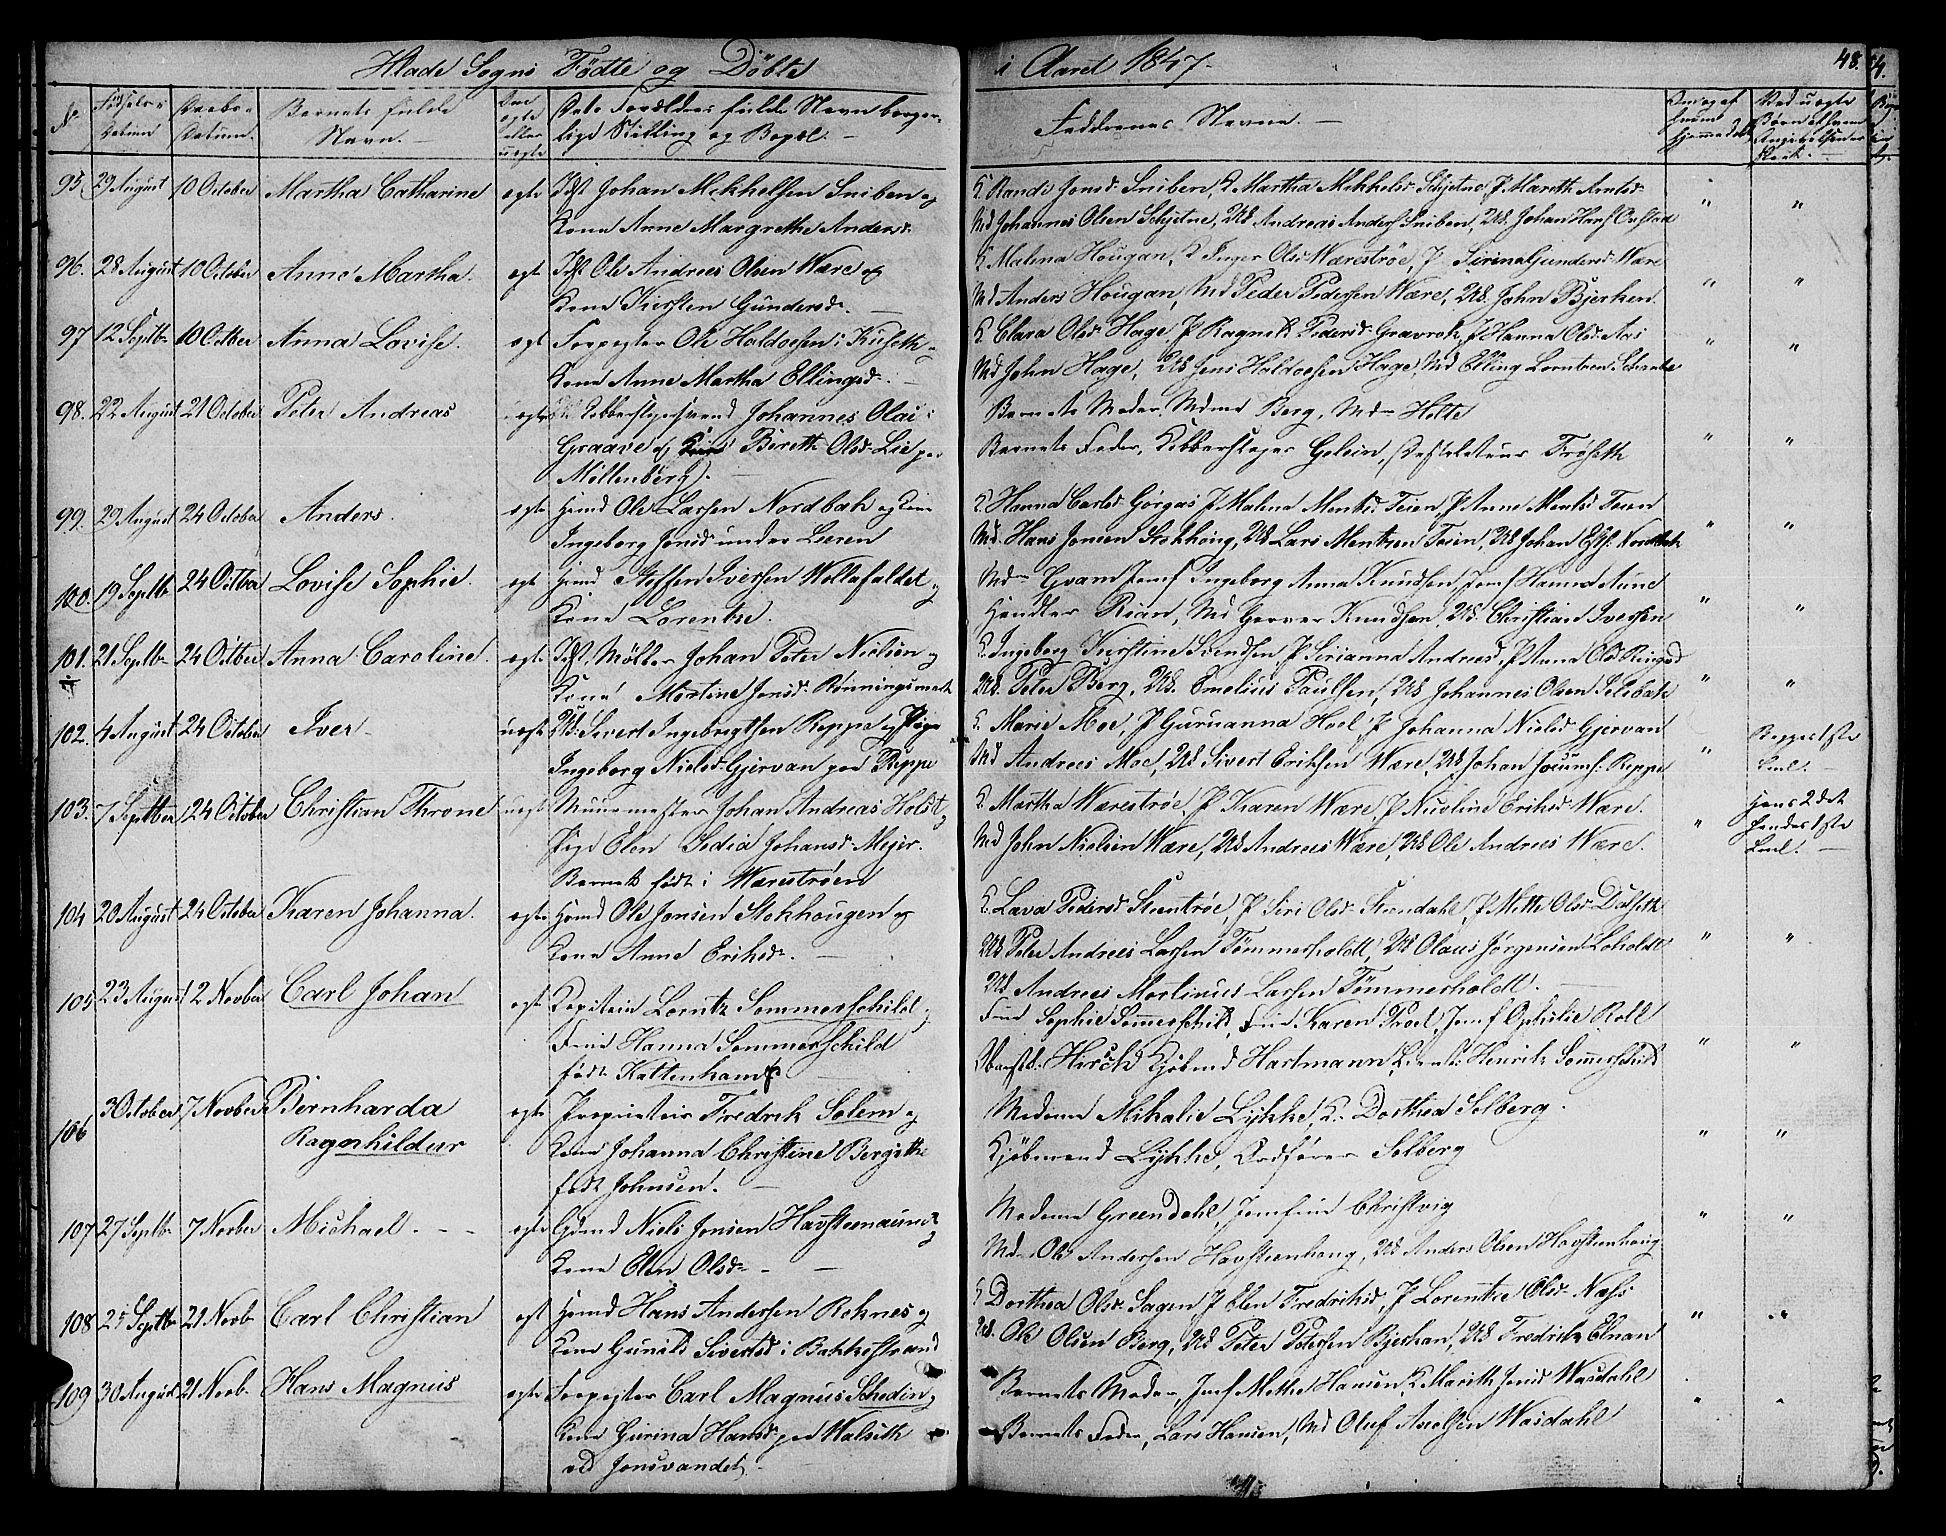 Hlade Sogns Fødte og Døbte
i Aaret 1847.
48.
No
Fødsels-
Datum
Daabs-
Datum.
Barnets fulde
Navn.
Om
ægte
eller
uægte
Dets Forældres fulde Navn borger-
lige Stilling og Bopæl.
Faddernes Navne.
Om og af
hvem
hjemmedøbt
Ved uægte
Børn
95. 29 August 10 October Martha Catharine ægte Idst Johan Mikkelsen Sniben og
Kone Anne Margrethe Andersd.
K Randi Jonsd. Sniben, K Martha Mikkelsd. Schjetne, P Mareth Arntsd.
Md Johannes Olsen Schjetne, UK Andreas Anders. Sniben, UK. Johan Hans. Onstad
96. 28 August 10 October Anne Martha. ægte Idst Ole Andreas Olsen Være og
Kone Kirsten Gundersd.
K Malena Hougan, K Inger Olsd. Værestrøe, P Sirena Gundersd. Være
Md Anders Hougan, Md Peder Pedersen Være, UK. John Bjerken.
97 12 Septbr 10 Octber Anna Lovise. ægte Forpagter Ole Haldorsen i Kuseth
Kone Anne Martha Ellingsd.
K Clara Olsd. Hage, P Ragnil Pedersd. Gravrok, P Hanna Olsd.
Md John Hage, UK Jens Haldorsen Hage, Md Elling Lorntsen
98. 22 August 21 October Peter Andreas uægte Kobberslagersvend Johannes Olai
Graave og Bereth Olsd. Lie paa
Möllenberg).
Barnets Moder, Madme Berg, Md Holte
Barnets Fader, Kobberslager Gelein, Frøseth
99. 29 August 24 October Anders. ægte Hmd Ole Larsen Nordbak og Kone
Ingeborg Jonsd. under Leren
K Hanna Carlsd. Görgas P Malena Mentsd. Teien, P Anne Mentsd. Teien
Md. Hans Jonsen Stokhoug, UK Lars Mentsen Teien, UK Johan Nordbak
100. 19 Septbr 24 Octber Lovise Sophie. ægte Hmd Steffen Iversen Nellafaldet
Kone Lorentze.
Md Gram Jomf Ingeborg Anna Knudsen, Jomf Hanna Aune
Handler Rian, Md Garver Knudsen, UK. Christian Iversen
101. 21 Septbr 24 Octber Anna Caroline. ægte Idst. Møller Johan Peter Nielsen og
Kone Martine Jonsd. Rønningsmark
K. Ingeborg Kirstine Svendsen P Sirianna Andreasd, P Anna Olsd Ringsd
UK. Peter Berg, UK. Emelius Paulsen, UK Johannes Olsen Selsbak
102. 4 August 24 October Iver uægte UK: Sivert Ingebrigtsen Reppe og Pige
Ingeborg Nielsd. Gjervan paa Reppe
K. Marie Moe, P Guruanna Hoel P Johanna Nielsd Gjervan
Md Andreas Moe, UK Sivert Eriksen Være, UK Johan Reppe
Begges 1ste
Leiel.
103. 7 Septber 24 October Christian Throne uægt Muurmester Johan Andreas Holst
Pige Elen Sedia Johansd. Mejer.
Barnet født i Værestrøen
K. Martha Værestrøe, P Karen Være, P Nicoline Eriksd Være.
Md John Nielsen Være, UK Andreas Være, UK Ole Andreas Være.
Hans 2det
hendes 1ste
Leiel.
104 20 August 24 October Karen Johanna. ægte Hmd Ole Jonsen Stokhougen og
Kone Anne Eriksd.
K. Lava Pedersd. Steentrøe, P Siri Olsd. Stendahl, P Mette Olsd Dalseth
UK Peter Andreas Larsen Tømmerholdt, UK Olaus Jørgensen Loholdt
UK Andreas Martinus Larsen Tømmerholdt.
105 23 August 2 Novber Carl Johan ægte Kapitain Lorntz Sommerschild
Frue Hanna Sommerschild
født Kattenham
Frue Sophie Sommerschild, Frue Karen Proet, Jomf Ophilie Roll
Hirsch Kjøbmd Hartmann, Henrik Sommerschild
106 3 October 7 Novber Bernharda
Ragnhildur
ægte Proprietair Fredrik Solem og
Kone Johanna Christine Bergithe
født Johnsen.
Madame Mikalie Lykke, K. Dorthea Solberg.
Kjøbmand Lykke, Ordfører Solberg
107 27 Septbr 7 Novber Michael. ægte Gdmd Niels Jonsen Havsteenaune
Kone Elen Olsdr
Madame Greendahl, Jomfrue Christvig
Md Ole Andersen Havsteenhoug, UK Anders Olsen Havsteenhoug
108 25 Septbr 21 Novb. Carl Christian ægt Hmd Hans Andersen Rohnes og
Kone Gunild Sivertsd i Bakkestrand
K Dorthea Olsd. Sagen P Elen Fredriksd, P Lorentze Olsd. Næss
UK. Ole Olsen Berg, UK Peter Petersen Bjerkan, UK Fredrik Elnan
109 30 August 21 Novb. Hans Magnus ægte Forpagter Carl Magnus Schedin
Kone Gurina Hansd. paa Walseth
ved Jonsvandet
Barnets Moder, Jomf Methe Hansen, K. Marith Jonsd Wasdahl
Barnets Fader, Lars Hansen, Md Oluf Axelsen Wasdahl